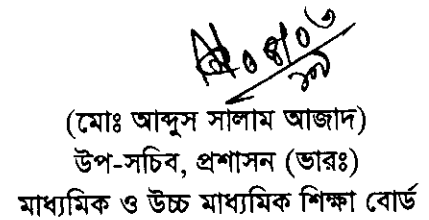 (মোঃ আব্দুস সালাম আজাদ)
উপ-সচিব, প্রশাসন (ভারঃ)
মাধ্যমিক ও উচ্চ মাধ্যমিক শিক্ষা বোর্ড